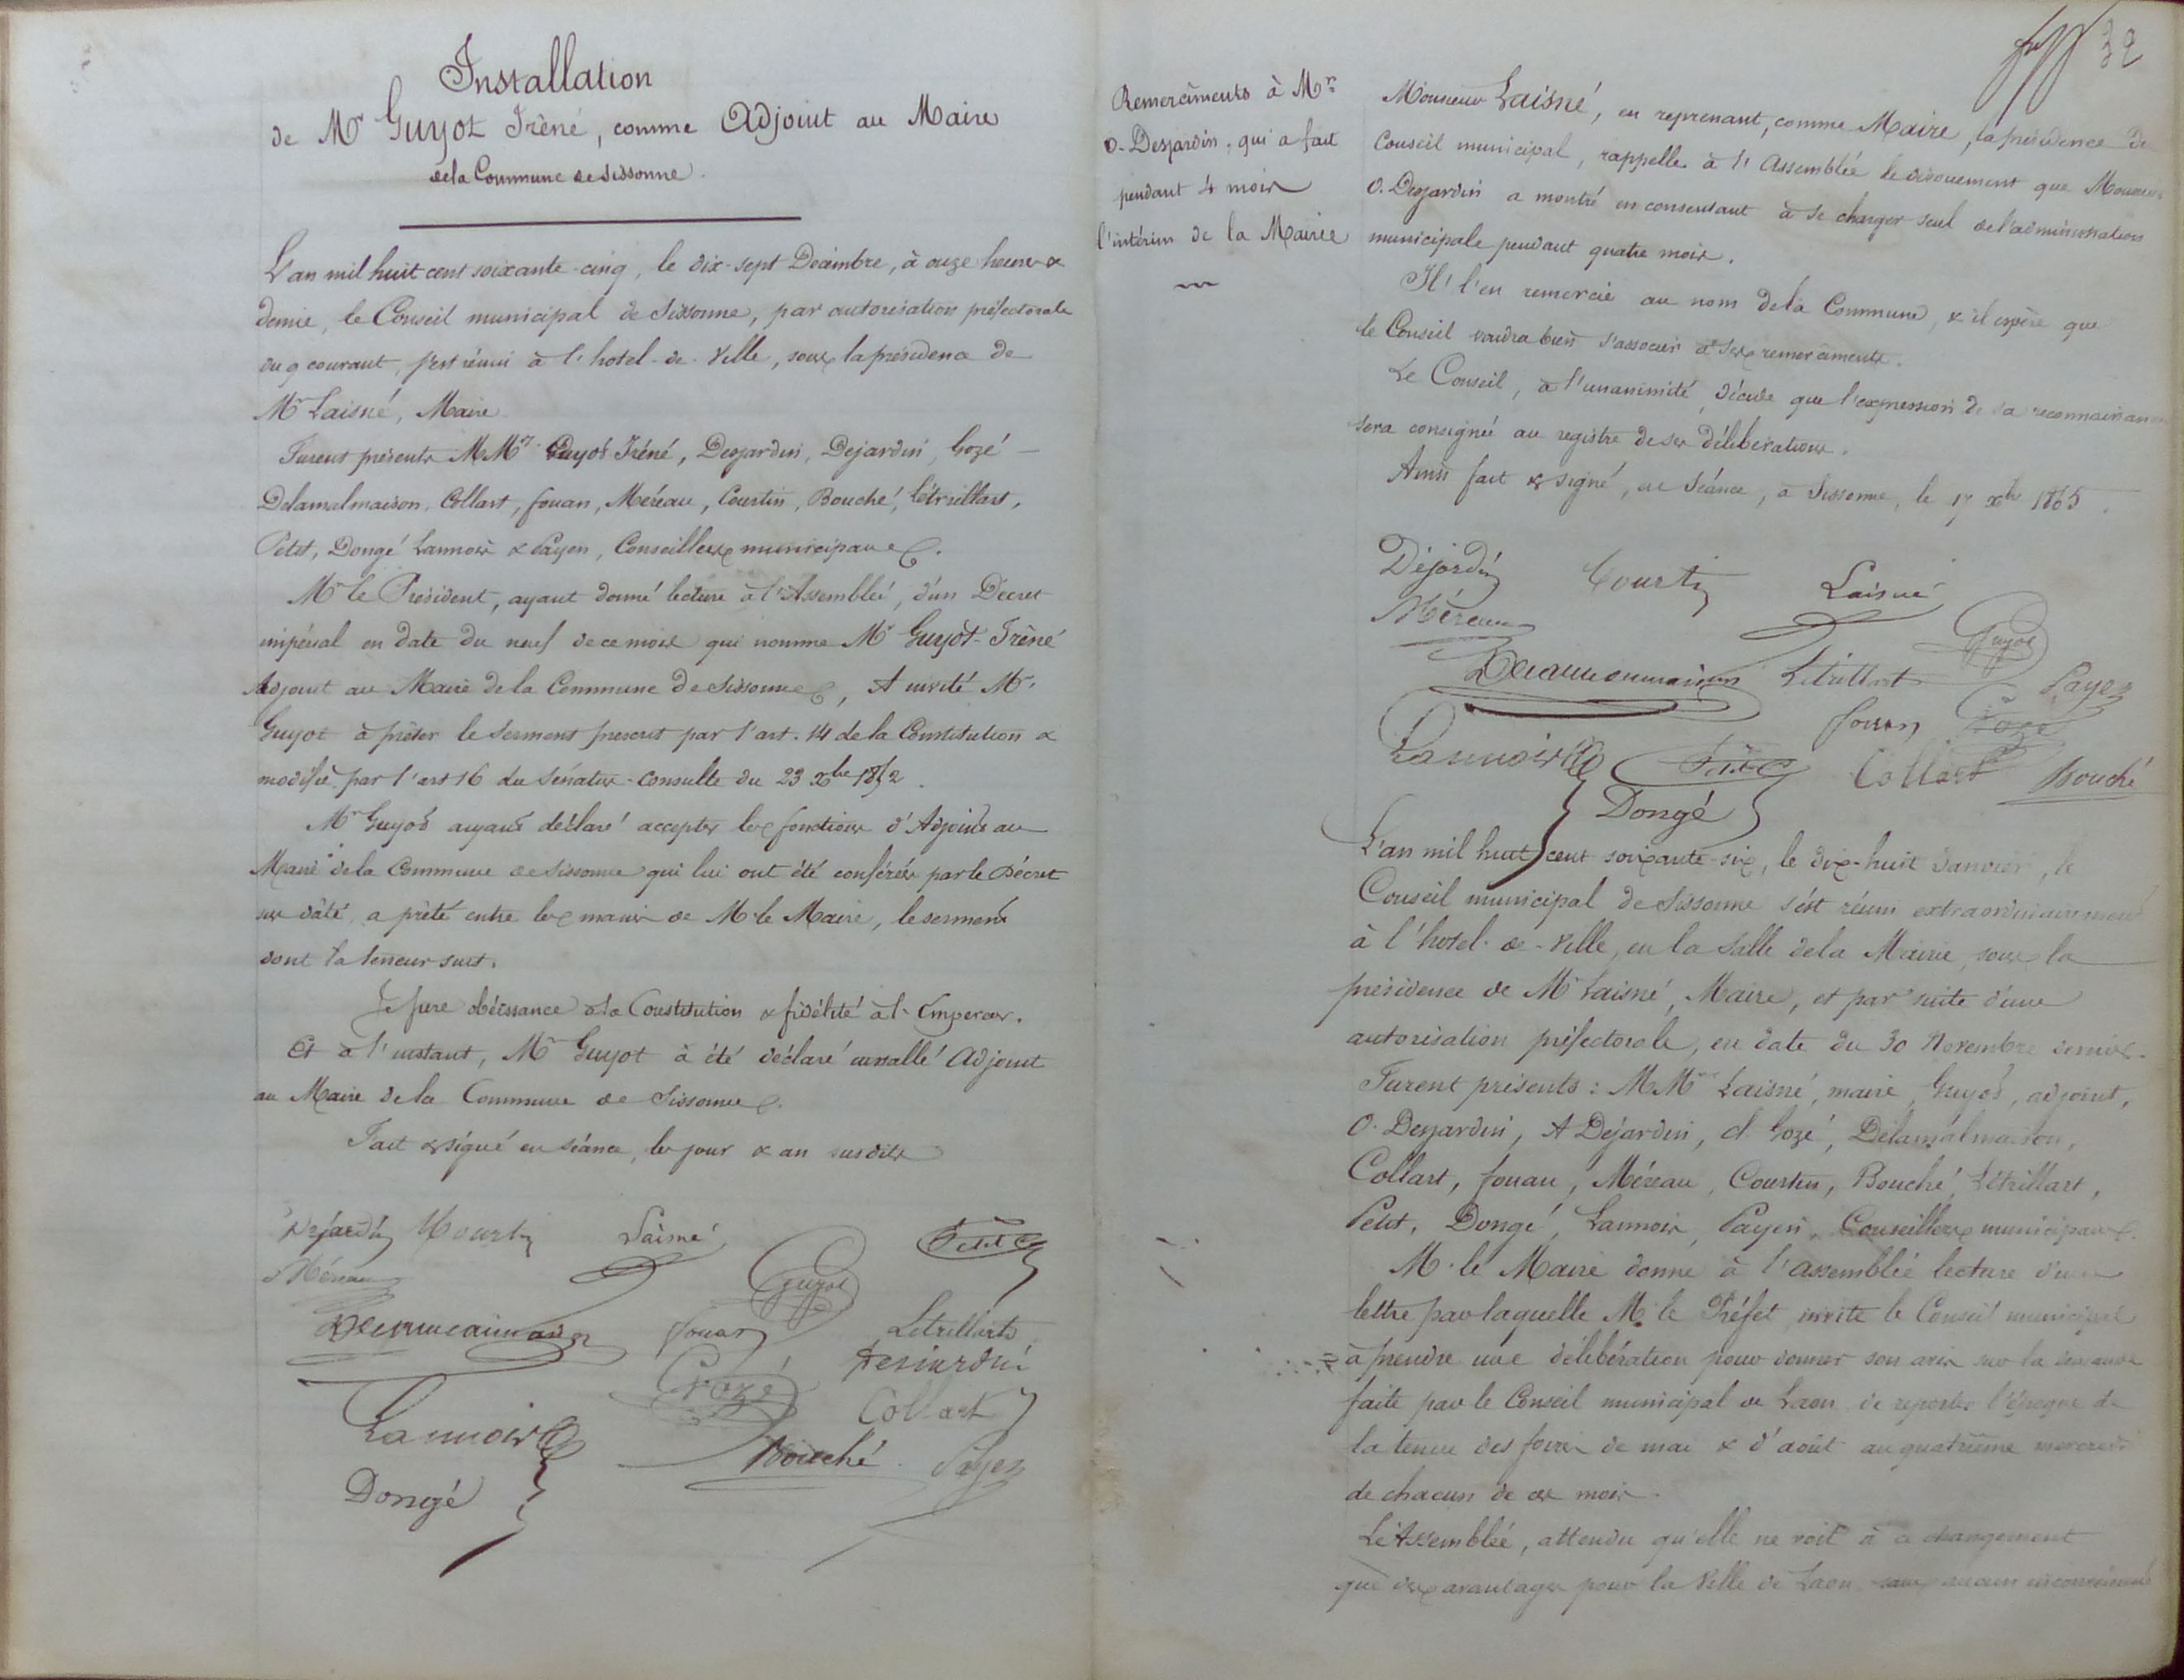 Installation
de Mr Guyot Iréné, comme Adjoint au Maire
de la Commune de Sissonne.
L'an mil huit cent soixante-cinq, le dix-sept Décembre, à onze heures &
demie, le Conseil municipal de Sissonne, par autorisation préfectorale
du 9 courant, s'est réuni à l'hotel-de-Ville, sous la présidence de
Mr Laisné, Maire.
Furent présents MMrs Guyot Iréné, Desjardin, Dejardin, Gozé
Delamalmaison, Collart, fouan, Méreau, Courtin, Bouché, Létrillart,
Petit, Dongé Lannois & Payen, Conseillers municipaux.
Mr le Président, ayant donné lecture à l'Assemblée, d'un Décret
impérial en date du neuf de ce mois qui nomme Mr Guyot-Iréné
Adjoint au Maire de la Commune de Sissonne, A invité Mr
Guyot à prêter le serment prescrit par l'art. 14 de la Constitution &
modifié par l'art 16 du Sénatus-Consulte du 23 Xbre 1852.
Mr Guyot ayant déclaré accepter les fonctions d'Adjoint au
Maire de la Commune de Sissonne qui lui ont été conférées par le Décret
sus daté, a prêté entre les mains de Mr le Maire, le serment
dont la teneur suit.
Je jure obéissance à la Constitution & fidélité à l'Empereur.
Et à l'instant, Mr Guyot à été déclaré installé Adjoint
au Maire de la Commune de Sissonne.
Fait & signé en séance, les jour & an susdits
Dejardin Courtin Laisné Petit
Méreau Guyot
Delamalmaison fouan Létrillart
Desjardin
Gozé Collart
Lannois Bouché Payen
Dongé
32
Remerciments à Mr
O. Desjardin, qui a fait
pendant 4 mois
l'intérim de la Mairie
Monsieur Laisné, en reprenant, comme Maire, la présidence du
Conseil municipal, rappelle à l'Assemblée le dévouement que Monsieur
O. Desjardin a montré en consentant à se charger seul de l'administration
municipale pendant quatre mois.
Il l'en remercie au nom de la Commune, & il espère que
le Conseil voudra bien s'associer à ses remerciments.
Le Conseil, à l'unanimité, décide que l'expression de sa reconnaissance
sera consignée au registre de ses délibérations.
Ainsi fait & signé, en Séance, à Sissonne, le 17 Xbre 1865.
Déjardin Courtin Laisné
Méreau Guyot
Delamalmaison Létrillart Payen
fouan Gozé
Lannois Petit Collart Bouché
Dongé
L'an mil huit cent soixante-six, le dix-huit Janvier, le
Conseil municipal de Sissonne s'est réuni extraordinairement
à l'hotel-de-Ville, en la Salle de la Mairie, sous la
présidence de Mr Laisné, Maire, et par suite d'une
autorisation préfectorale, en date du 30 Novembre dernier.
Furent présents: MMrs Laisné, maire, Guyot, adjoint,
O. Desjardin, A Déjardin, Gozé, Delamalmaison,
Collart, fouan, Méreau, Courtin, Bouché, Létrillart,
Petit, Dongé, Lannois, Payen, Conseillers municipaux.
M. le Maire donne à l'assemblée lecture d'une
lettre par laquelle Mr le Préfet invite le Conseil municipal
à prendre une délibération pour donner son avis sur la demande
faite par le Conseil municipal de Laon de reporter l'époque de
la tenue des foires de mai & d'août au quatrième mercredi
de chacun de ces mois.
L'Assemblée, attendu qu'elle ne voit à ce changement
que des avantages pour la Ville de Laon sans aucun inconvénient